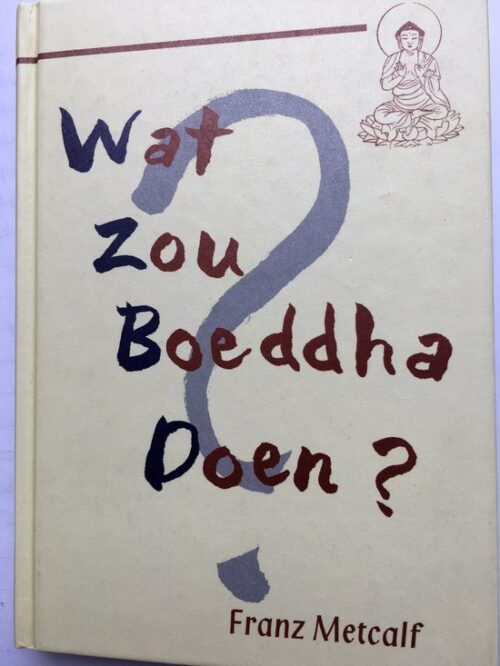 Wat
Zou
Boeddha
Doen ?
Franz Metcalf